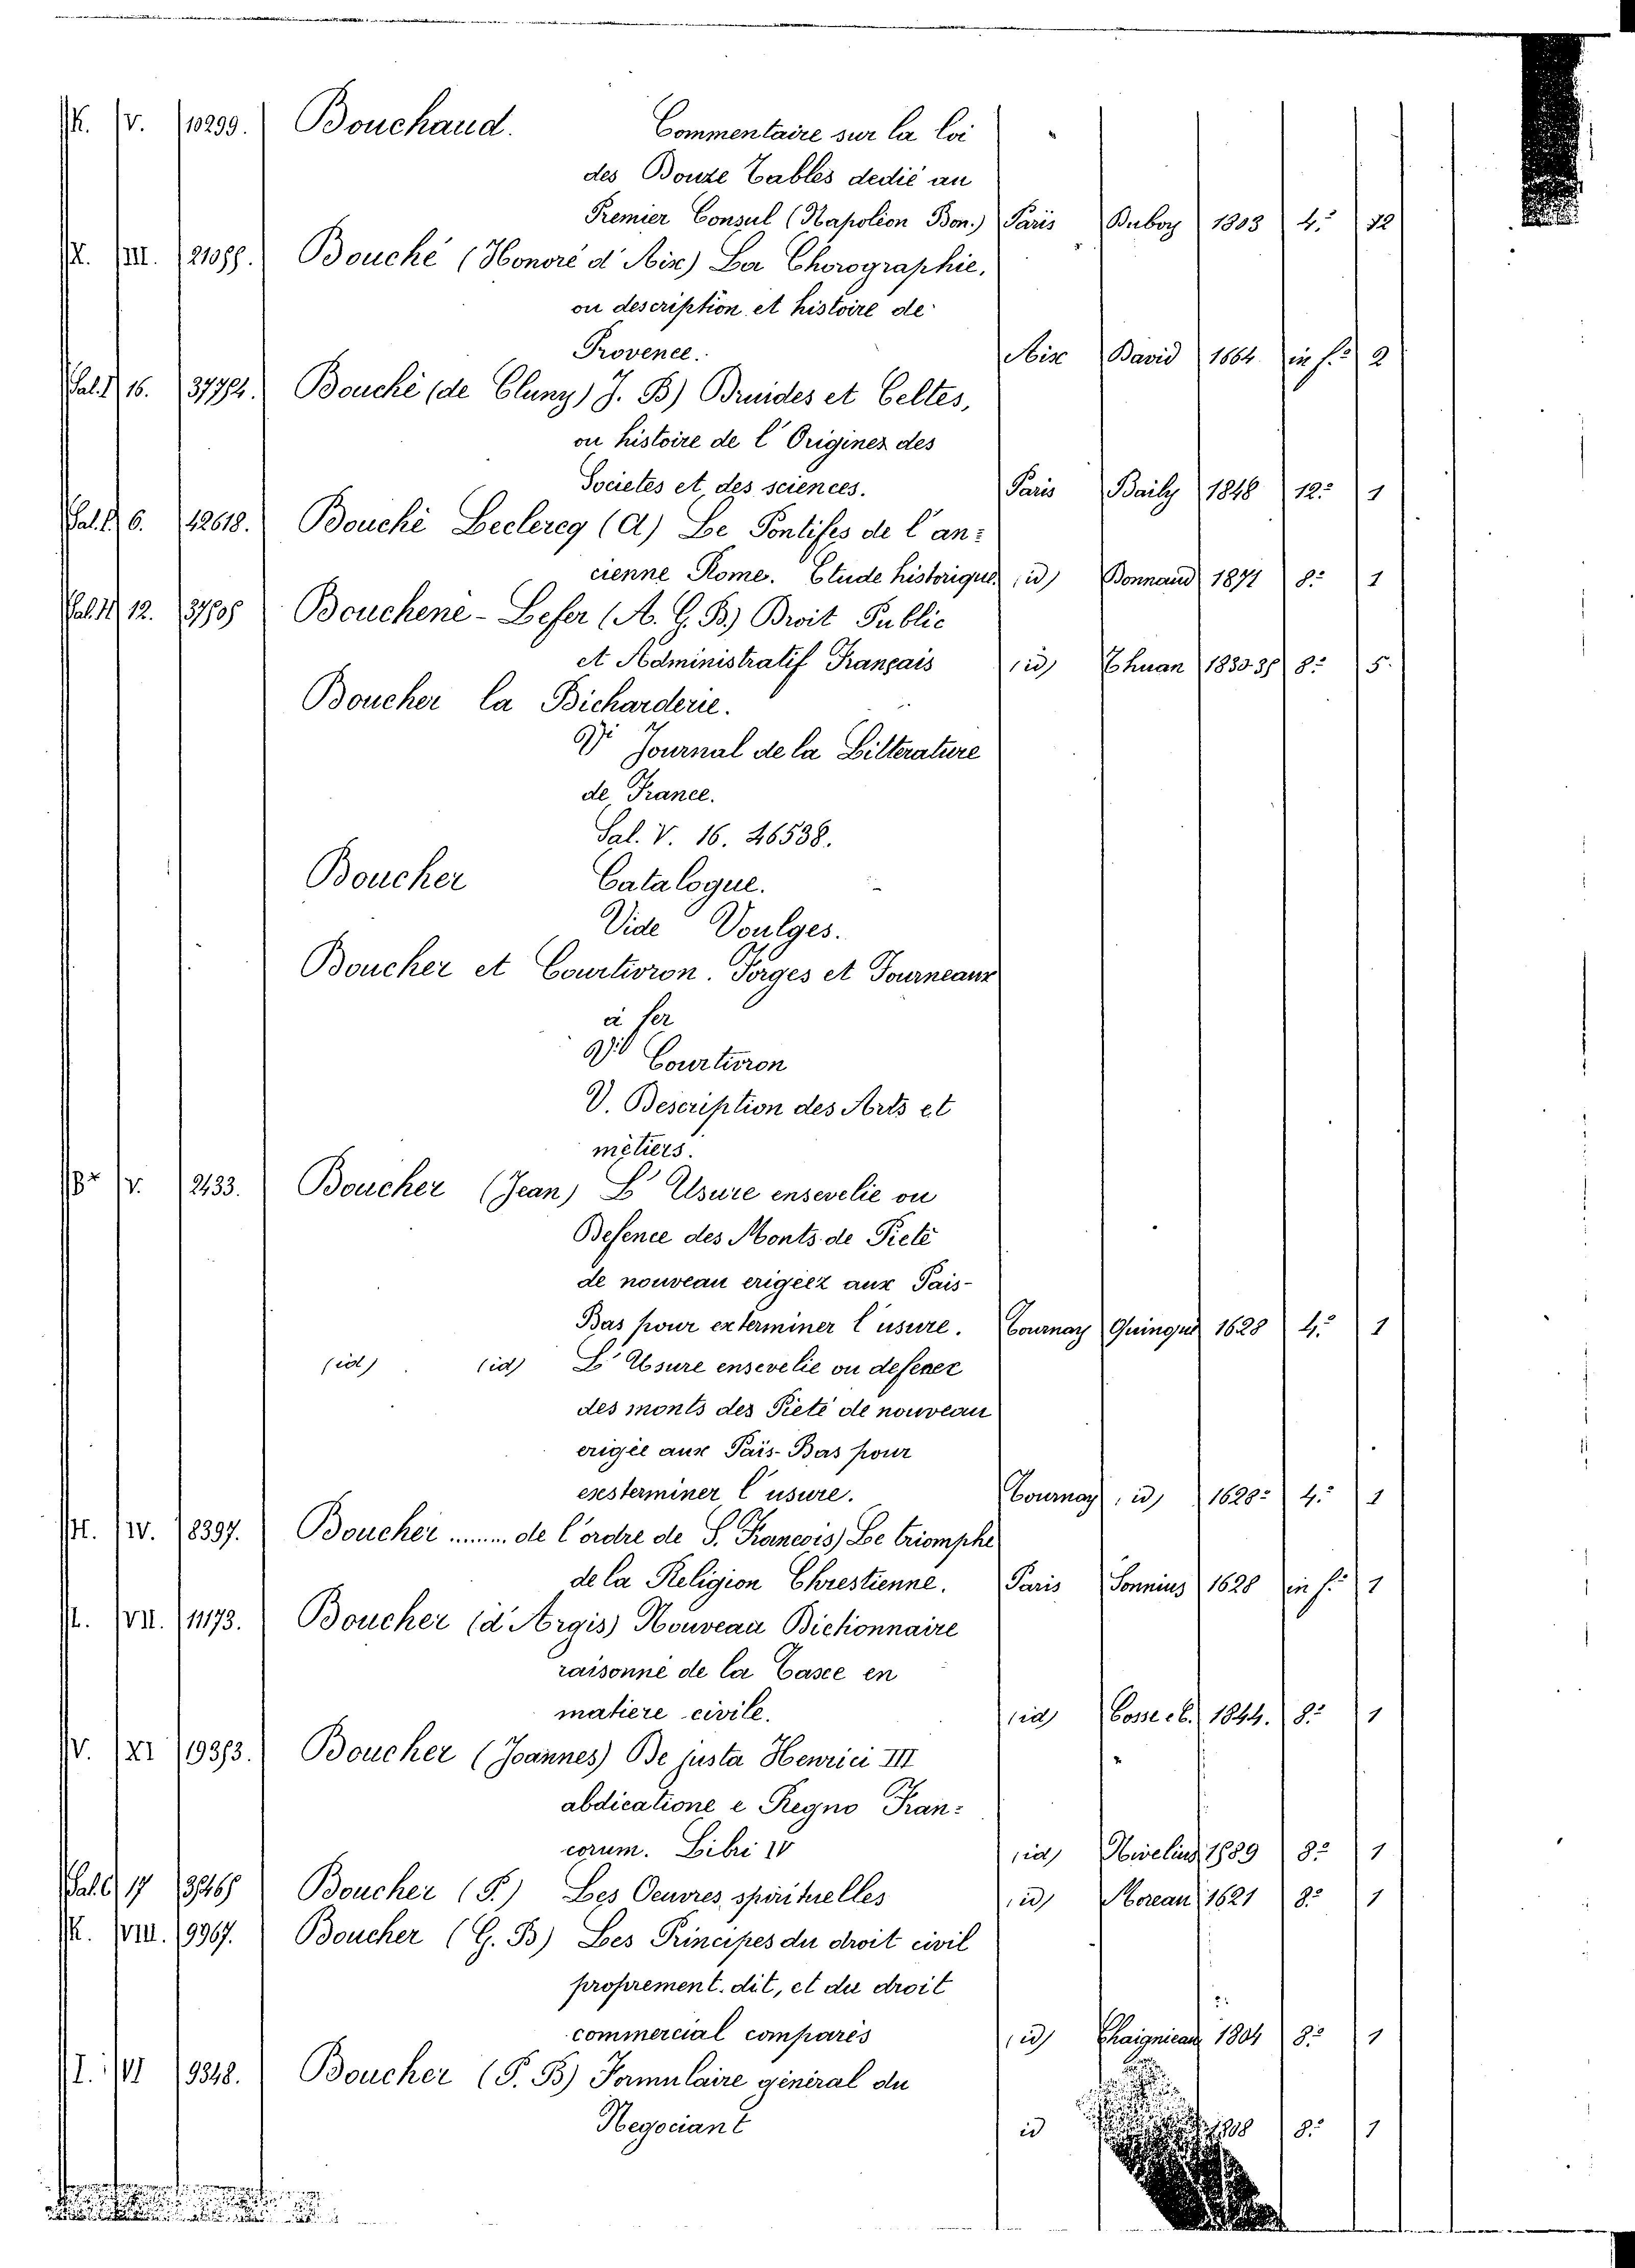 K. V. 10299. Bouchaud. Commentaire sur la loi
des Douze Tables dedié au
Premier Consul (Napoléon Bon.) Paris Duboy 1803 4.° 12
X. III. Bouché (Honoré d'Aix) La Chorographie,
ou description et histoire de
Provence. Aix David 1664 in f.° 2
16. Bouché (de Cluny) J. B) Druides et Celtes,
ou histoire de l'Origines des
Societes et des sciences. Paris Baily 1848 12.° 1
6. 42618. Bouché Leclercg (A) Le Pontifes de l'an=
cienne Rome. Etude historique. (id) Bonnaud 1871 8.° 1
12. Bouchené-Lefer (A. G. B.) Droit Public
et Administratif Français (id) 8.° 5.
Boucher la Richarderie.
V.i Journal de la Litterature
de France.
Sal. V. 16. 46538.
Boucher Catalogue.
Vide Voulges.
Boucher et Courtivron. Forges et Fourneaux
à fer
V.i Courtivron
V. Description des Arts et
métiers.
V. 2433. Boucher (Jean) L'Usure ensevelie ou
Defence des Monts de Pieté
de nouveau erigéez aux Pais-
Bas pour exterminer l'usure. Tournay Quinqué 1628 4.° 1
(id) (id) L'Usure ensevelie ou defence
des monts des Pieté de nouveau
erigée aux Païs-Bas pour
exsterminer l'usure. Tournay (id) 1628. 4.° 1
H. IV. 8397. Boucher ....... de l'ordre de S. Francois) Le triomphe
de la Religion Chrestienne. Paris Sonnius 1628 in f.° 1
L. VII. 11173. Boucher (d'Argis) Nouveau Dictionnaire
raisonné de la Taxe en
matiere civile. (id) Cosse e C. 1844. 8.° 1
V. XI Boucher (Joannes) De justa Henrici III
abdicatione e Regno Fran=
corum. Libri IV (id) Nivelius 1589 8.° 1
17 Boucher (P.) Les Oeuvres spirituelles (id) Moreau 1621 8.° 1
K. VIII. 9967. Boucher (G. B) Les Principes du droit civil
proprement dit, et du droit
commercial comparés (id) Chaignieau 1804 8.° 1
I. VI 9348. Boucher (P. B) Formulaire général du
Negociant id 1808 8.° 1